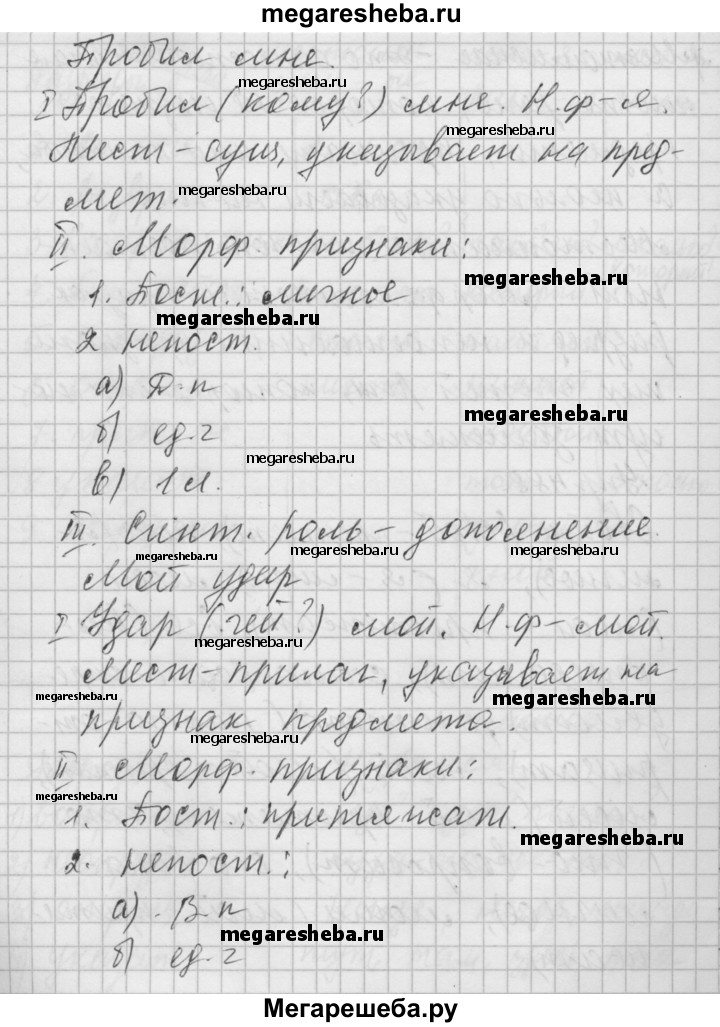 megaresheba.ru
Пробил мне.
megaresheba.ru
I Пробил (кому?) мне. Н.ф-я.
megaresheba.ru
Мест-сущ, указывает на пред-
мет.
megaresheba.ru
II. Морф. признаки:
megaresheba.ru
1. Пост.: личное
megaresheba.ru
2 непост.
а) Д.п
megaresheba.ru
б) ед.ч
megaresheba.ru
в) 1 л.
III. Синт. роль - дополнение.
megaresheba.ru megaresheba.ru megaresheba.ru
Мой удар
I Удар (чей?) мой. Н.ф-мой.
megaresheba.ru
Мест-прилаг, указывает на
megaresheba.ru megaresheba.ru
признак предмета.
megaresheba.ru
II Морф. признаки:
megaresheba.ru
1. Пост.: притяжат.
megaresheba.ru
2. непост.:
а). В.п
megaresheba.ru
б) ед.ч
megaresheba.ru
Мегарешеба.ру